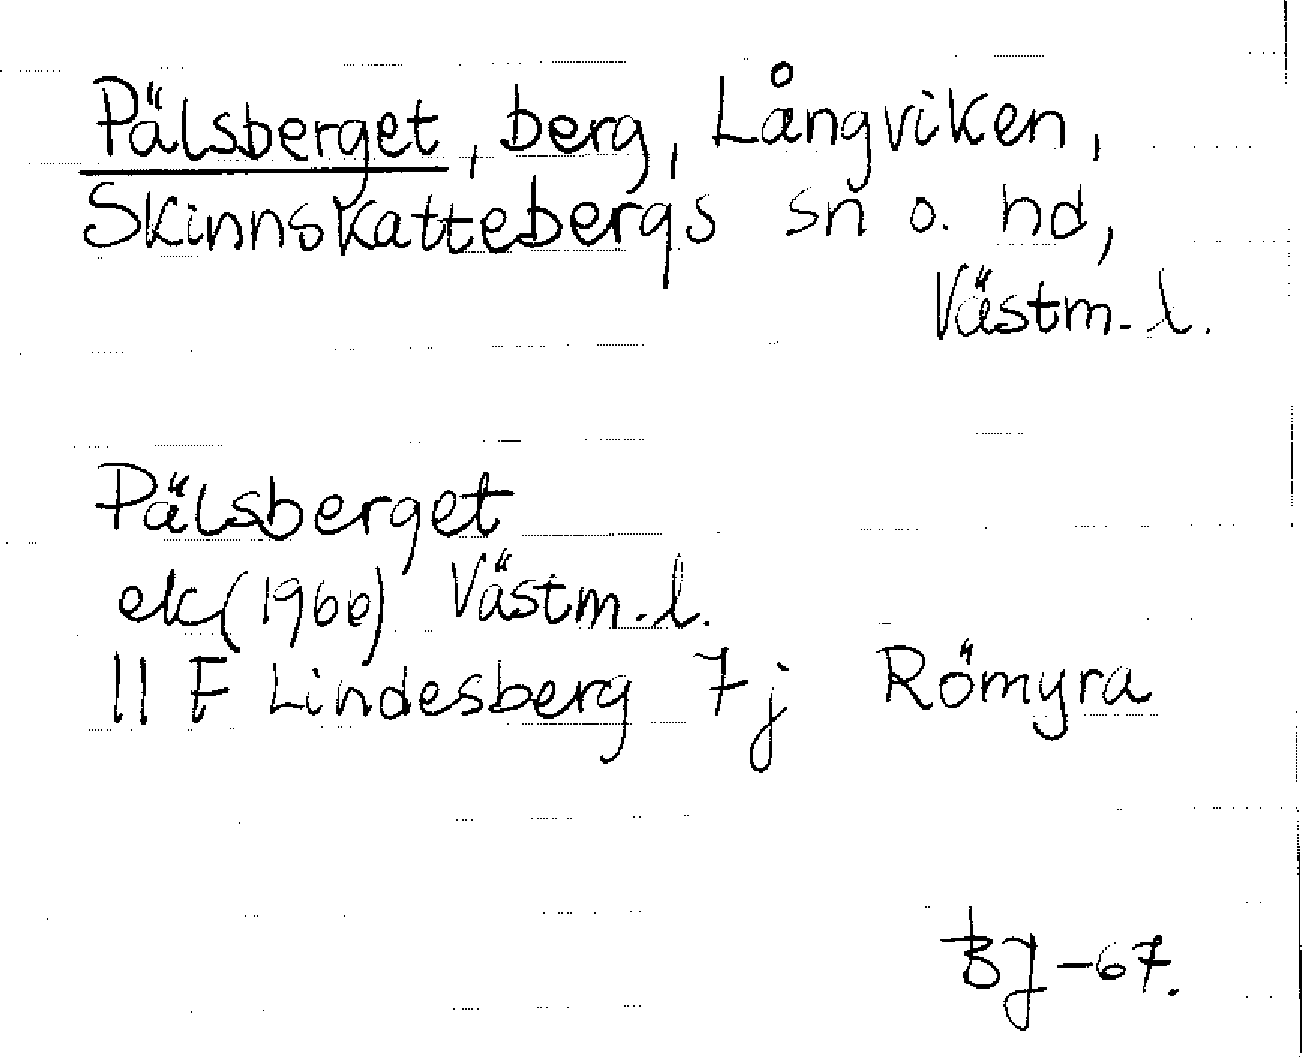 Pälsberget, berg, Långviken,
Skinnskattebergs sn o. hd,
Västm. l.
Pälsberget
ek (1960) Västm. l.
11 F Lindesberg 7j Römyra
BJ -67.